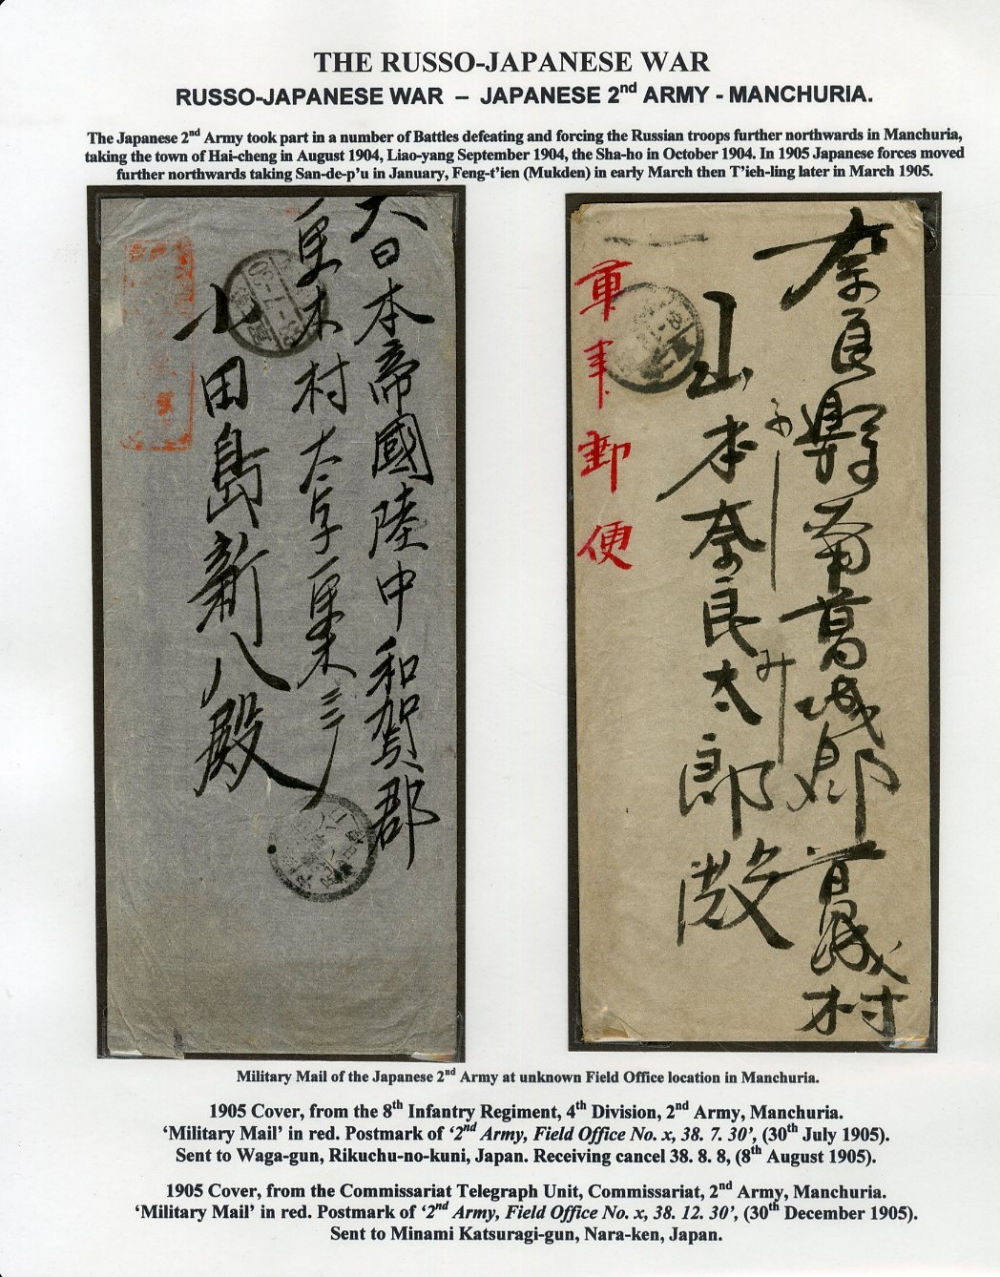 THE RUSSO-JAPANESE WAR
RUSSO-JAPANESE WAR – JAPANESE 2nd ARMY - MANCHURIA.
The Japanese 2nd Army took part in a number of Battles defeating and forcing the Russian troops further northwards in Manchuria,
taking the town of Hai-cheng in August 1904, Liao-yang September 1904, the Sha-ho in October 1904. In 1905 Japanese forces moved
further northwards taking San-de-p'u in January, Feng-t'ien (Mukden) in early March then T'ieh-ling later in March 1905.
大日本帝國陸中和賀郡
更木村大字更木三
小田島新八殿
奈良縣南葛城郡葛城村
山本奈良太郎殿
軍事郵便
Military Mail of the Japanese 2nd Army at unknown Field Office location in Manchuria.
1905 Cover, from the 8th Infantry Regiment, 4th Division, 2nd Army, Manchuria.
'Military Mail' in red. Postmark of '2nd Army, Field Office No. x, 38. 7. 30', (30th July 1905).
Sent to Waga-gun, Rikuchu-no-kuni, Japan. Receiving cancel 38. 8. 8, (8th August 1905).
1905 Cover, from the Commissariat Telegraph Unit, Commissariat, 2nd Army, Manchuria.
'Military Mail' in red. Postmark of '2nd Army, Field Office No. x, 38. 12. 30', (30th December 1905).
Sent to Minami Katsuragi-gun, Nara-ken, Japan.